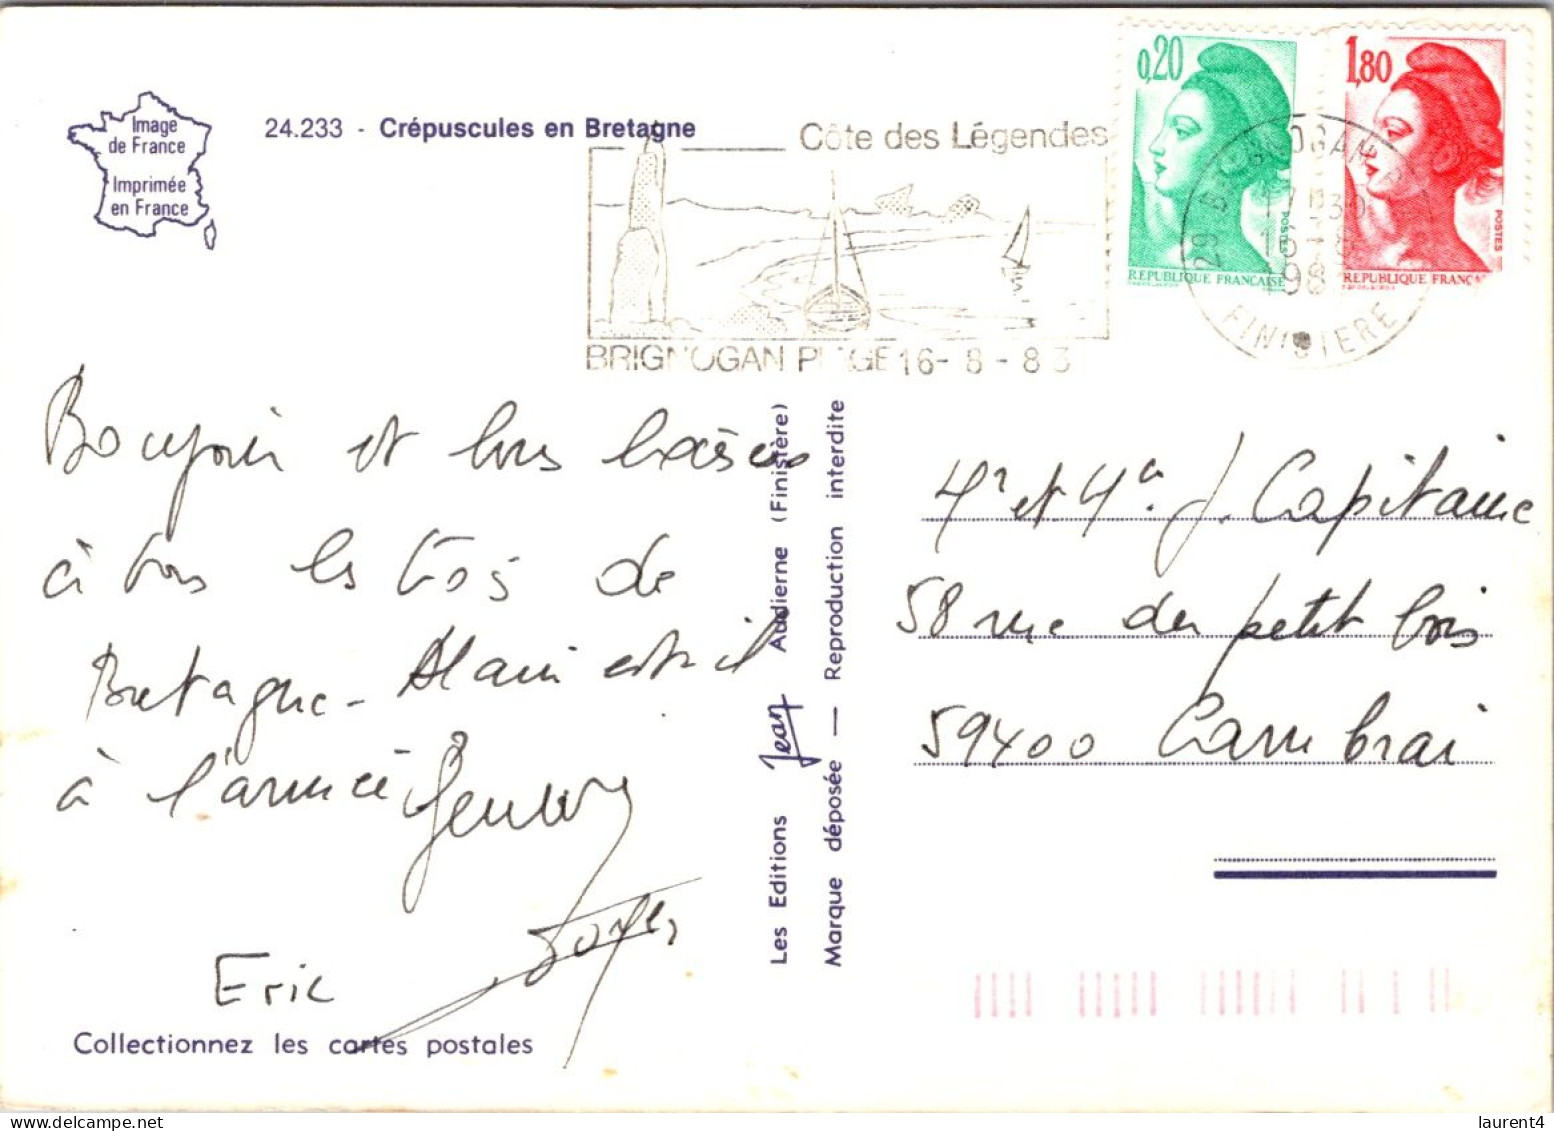 Image
de France
Imprimée
en France
24.233 - Crépuscules en Bretagne
Côte des Légendes
BRIGNOGAN PLAGE 16-8-83
0,20
POSTES
REPUBLIQUE FRANÇAISE
1,80
POSTES
REPUBLIQUE FRANÇA
29 BRIGNOGAN
FINISTERE
Bonjour et bons baisers
à tous les trois de
Bretagne - Alain est-il
à l'armée
Eric
Collectionnez les cartes postales
Les Editions Jean Audierne (Finistère)
Marque déposée — Reproduction interdite
Mr et Me. J. Capitaine
58 rue du petit bois
59400 Cambrai
laurent4